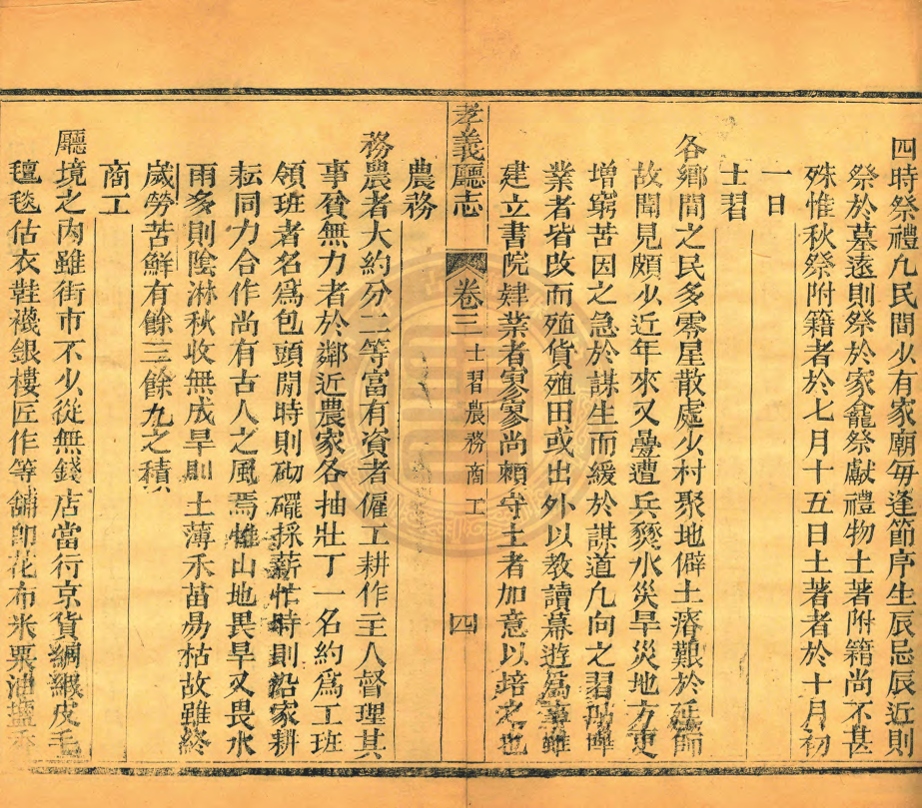 四時祭禮凢民間少有家廟每逢節序生辰忌辰近則
祭於墓遠則祭於家龕祭獻禮物土著附籍尚不甚
殊惟秋祭附籍者於七月十五日土著者於十月初
一日
士習
各鄉間之民多零星散處少村聚地僻土瘠艱於延師
故聞見頗少近年來又疊遭兵燹水災旱災地方更
增窮苦因之急於謀生而緩於謀道凢向之習舉
業者皆改而殖貨殖田或出外以教讀幕遊為事雖
建立書院肄業者寥寥尚賴守土者加意以培之也
孝義廳志
卷三
士習農務商工
四
農務
務農者大約分二等富有資者僱工耕作主人督理其
事貧無力者於鄰近農家各抽壯丁一名約為工班
領班者名為包頭閒時則砌磿採薪忙時則沿家耕
耘同力合作尚有古人之風焉惟山地畏旱又畏水
雨多則陰淋秋收無成旱則土薄禾苗易枯故雖終
歲勞苦鮮有餘三餘九之積
商工
廳境之內雖街市不少從無錢店當行京貨綢緞皮毛
氊毯估衣鞋襪銀樓匠作等舖卽花布米粟油鹽香